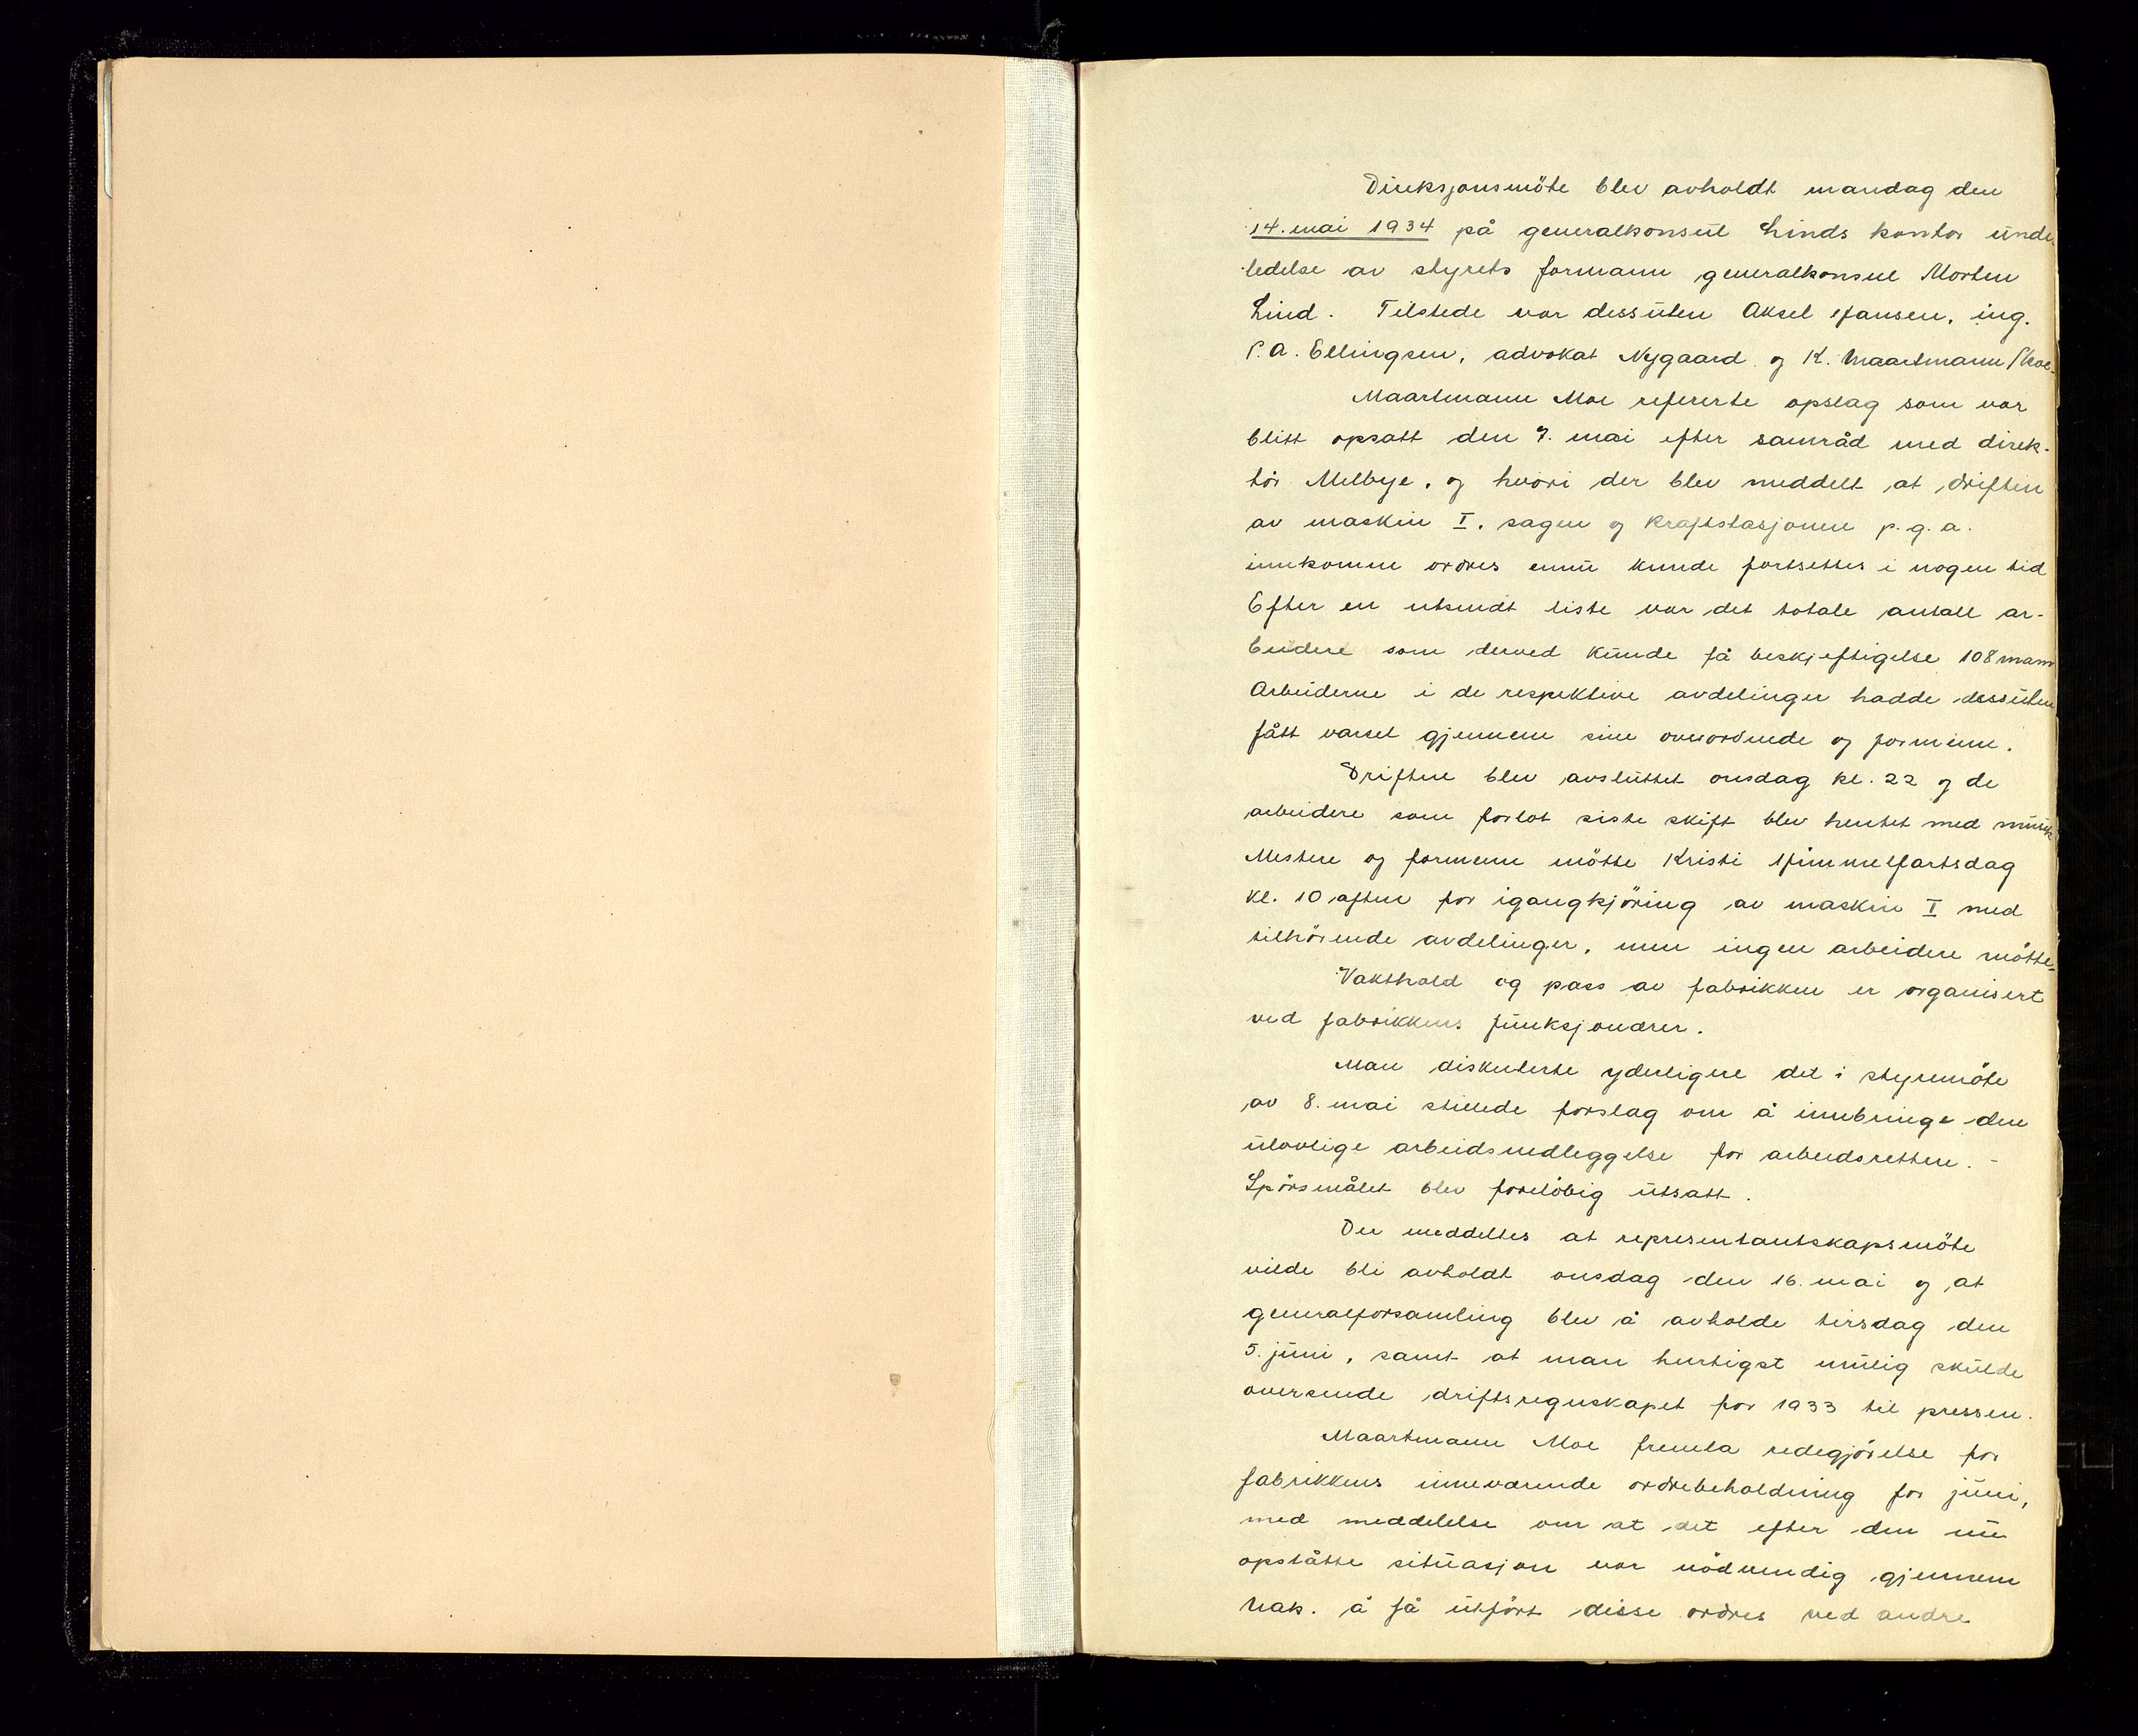 Direksjonsmöte blev avholdt mandag den
14. mai 1934 på generalkonsul Linds kontor under
ledelse av styrets formann generalkonsul Morten
Lind. Tilstede var dessuten Aksel Hansen, ing.
P.A. Ellingsen, advokat Nygaard og K. Maartmann Moe.
Maartmann Moe refererte opslag som var
blitt opsatt den 9. mai efter samråd med direk-
tör Melbye, og hvori der blev meddelt at driften
av maskin I, sagen og kraftstasjonen p.g.a.
innkomne ordres ennu kunde fortsettes i nogen tid
Efter en utsendt liste var det totale antall ar-
beidere som derved kunde få beskjeftigelse 108 mann
Arbeiderne i de respektive avdelinger hadde dessuten
fått varsel gjennem sine overordnede og formenn.
Driften blev avsluttet onsdag kl. 22 og de
arbeidere som forlot siste skift blev hentet med musik
Mestere og formenn mötte Kristi Himmelfartsdag
kl. 10 aften for igangkjöring av maskin I med
tilhörende avdelinger, men ingen arbeidere mötte.
Vakthold og pass av fabrikken er organisert
ved fabrikkens funksjonærer.
Man diskuterte yderligere det i styremöte
av 8. mai stillede forslag om å innbringe den
ulovlige arbeidsnedleggelse for arbeidsretten. -
Spörsmålet blev foreløbig utsatt.
Der meddeltes at representantskapsmöte
vilde bli avholdt onsdag den 16. mai og at
generalforsamling blev å avholde tirsdag den
5. juni, samt at man hurtigst mulig skulde
oversende driftsregnskapet for 1933 til pressen.
Maartmann Moe fremla redegjörelse for
fabrikkens inneværende ordrebeholdning for juni,
med meddelelse om at det efter den nu
opståtte situasjon var nödvendig gjennem
Nak. å få utfört disse ordres ved andre